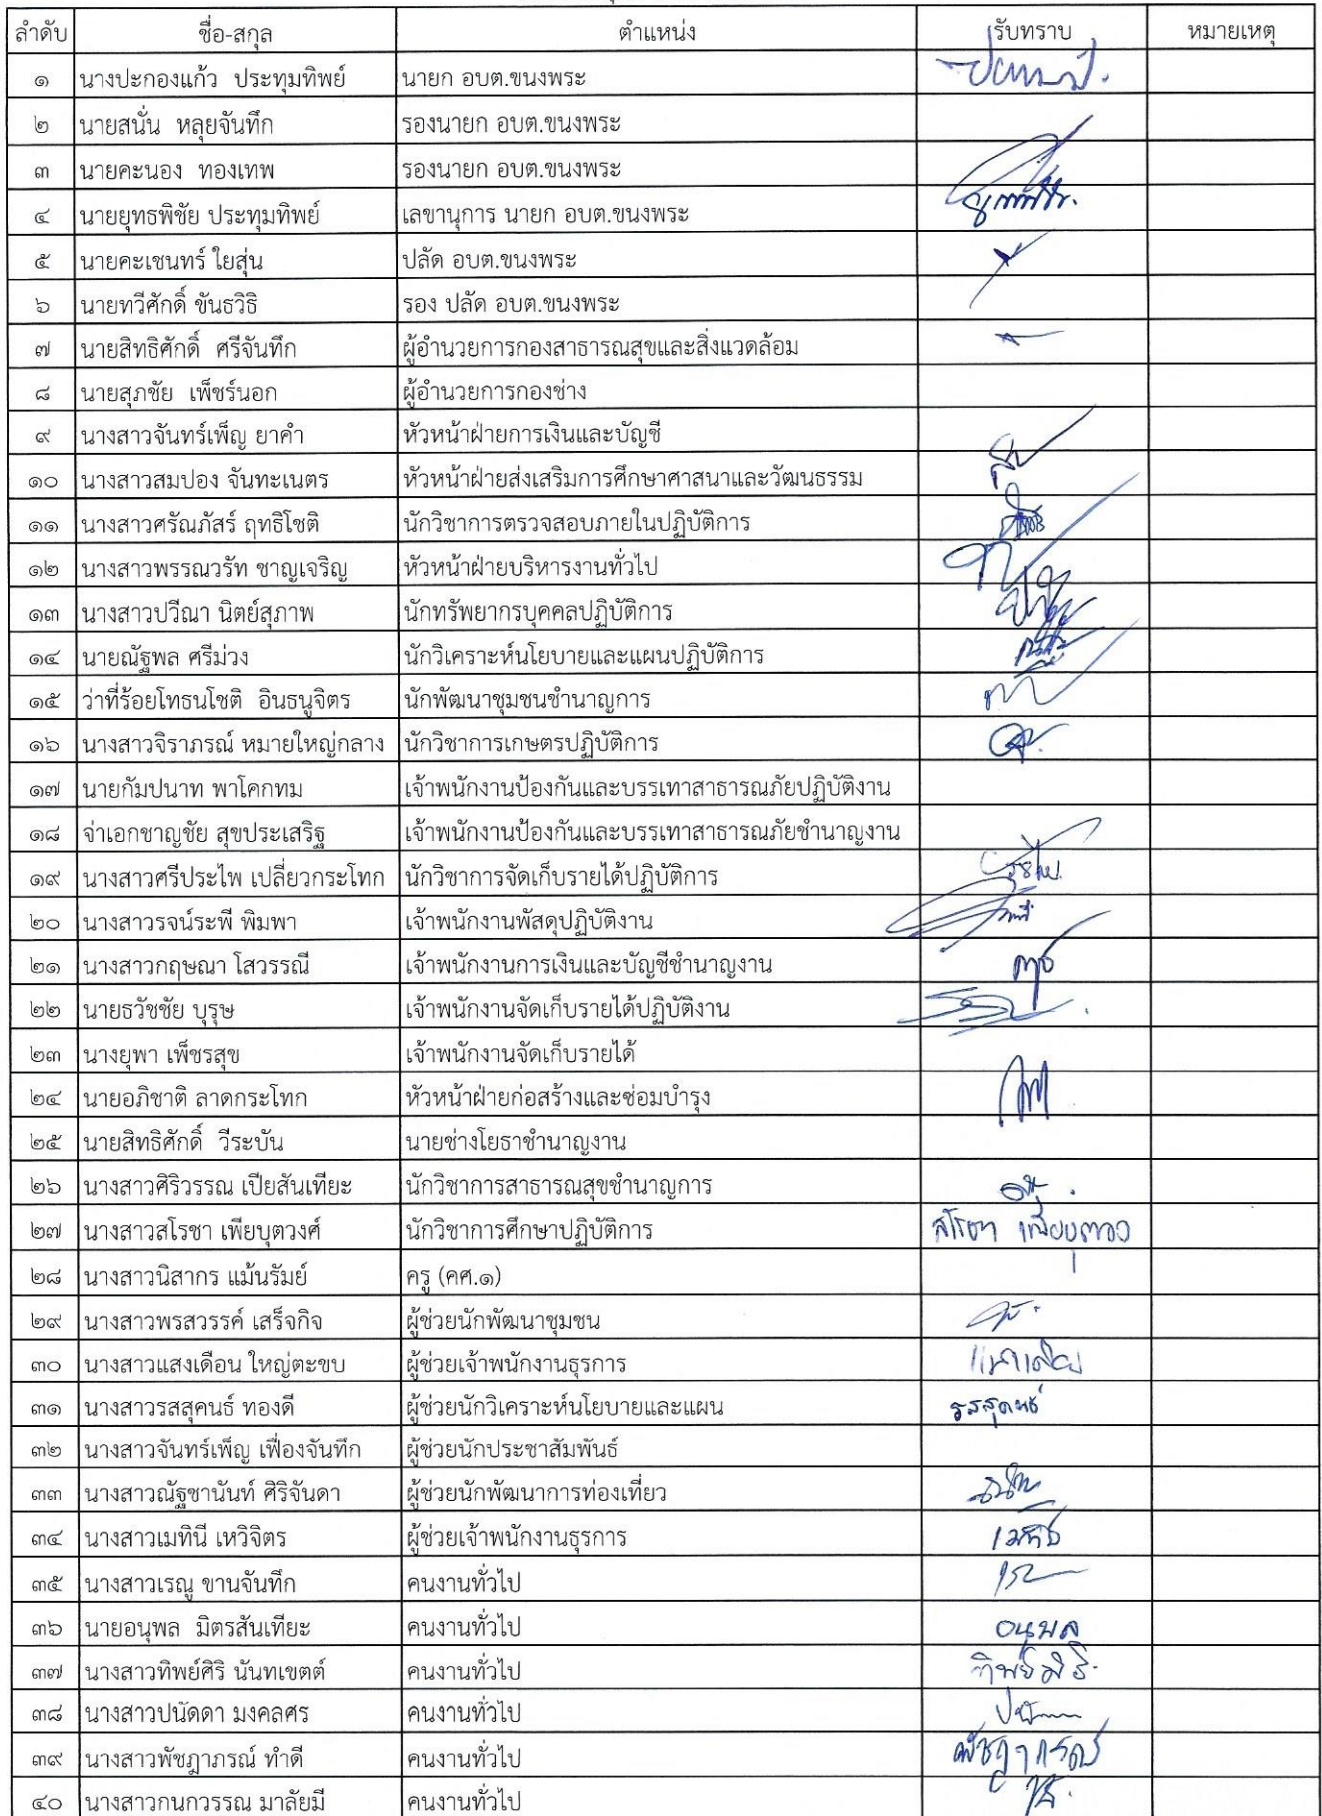 ลำดับ ชื่อ-สกุล ตำแหน่ง รับทราบ หมายเหตุ
๑ นางปะกองแก้ว ประทุมทิพย์ นายก อบต.ขนงพระ
๒ นายสนั่น หลุยจันทึก รองนายก อบต.ขนงพระ
๓ นายคะนอง ทองเทพ รองนายก อบต.ขนงพระ
๔ นายยุทธพิชัย ประทุมทิพย์ เลขานุการ นายก อบต.ขนงพระ
๕ นายคะเชนทร์ ใยสุ่น ปลัด อบต.ขนงพระ
๖ นายทวีศักดิ์ ขันธวิธิ รอง ปลัด อบต.ขนงพระ
๗ นายสิทธิศักดิ์ ศรีจันทึก ผู้อำนวยการกองสาธารณสุขและสิ่งแวดล้อม
๘ นายสุภชัย เพ็ชร์นอก ผู้อำนวยการกองช่าง
๙ นางสาวจันทร์เพ็ญ ยาคำ หัวหน้าฝ่ายการเงินและบัญชี
๑๐ นางสาวสมปอง จันทะเนตร หัวหน้าฝ่ายส่งเสริมการศึกษาศาสนาและวัฒนธรรม
๑๑ นางสาวศรัณภัสร์ ฤทธิโชติ นักวิชาการตรวจสอบภายในปฏิบัติการ
๑๒ นางสาวพรรณวรัท ชาญเจริญ หัวหน้าฝ่ายบริหารงานทั่วไป
๑๓ นางสาวปวีณา นิตย์สุภาพ นักทรัพยากรบุคคลปฏิบัติการ
๑๔ นายณัฐพล ศรีม่วง นักวิเคราะห์นโยบายและแผนปฏิบัติการ
๑๕ ว่าที่ร้อยโทธนโชติ อินธนูจิตร นักพัฒนาชุมชนชำนาญการ
๑๖ นางสาวจิราภรณ์ หมายใหญ่กลาง นักวิชาการเกษตรปฏิบัติการ
๑๗ นายกัมปนาท พาโคกทม เจ้าพนักงานป้องกันและบรรเทาสาธารณภัยปฏิบัติงาน
๑๘ จ่าเอกชาญชัย สุขประเสริฐ เจ้าพนักงานป้องกันและบรรเทาสาธารณภัยชำนาญงาน
๑๙ นางสาวศรีประไพ เปลี่ยวกระโทก นักวิชาการจัดเก็บรายได้ปฏิบัติการ
๒๐ นางสาวรจน์ระพี พิมพา เจ้าพนักงานพัสดุปฏิบัติงาน
๒๑ นางสาวกฤษณา โสวรรณี เจ้าพนักงานการเงินและบัญชีชำนาญงาน
๒๒ นายธวัชชัย บุรุษ เจ้าพนักงานจัดเก็บรายได้ปฏิบัติงาน
๒๓ นางยุพา เพ็ชรสุข เจ้าพนักงานจัดเก็บรายได้
๒๔ นายอภิชาติ ลาดกระโทก หัวหน้าฝ่ายก่อสร้างและซ่อมบำรุง
๒๕ นายสิทธิศักดิ์ วีระบัน นายช่างโยธาชำนาญงาน
๒๖ นางสาวศิริวรรณ เปียสันเทียะ นักวิชาการสาธารณสุขชำนาญการ
๒๗ นางสาวสโรชา เพียบุตวงศ์ นักวิชาการศึกษาปฏิบัติการ
๒๘ นางสาวนิสากร แม้นรัมย์ ครู (คศ.๑)
๒๙ นางสาวพรสวรรค์ เสร็จกิจ ผู้ช่วยนักพัฒนาชุมชน
๓๐ นางสาวแสงเดือน ใหญ่ตะขบ ผู้ช่วยเจ้าพนักงานธุรการ
๓๑ นางสาวรสสุคนธ์ ทองดี ผู้ช่วยนักวิเคราะห์นโยบายและแผน รสสุคนธ์
๓๒ นางสาวจันทร์เพ็ญ เฟื่องจันทึก ผู้ช่วยนักประชาสัมพันธ์
๓๓ นางสาวณัฐชานันท์ ศิริจันดา ผู้ช่วยนักพัฒนาการท่องเที่ยว
๓๔ นางสาวเมทินี เหวิจิตร ผู้ช่วยเจ้าพนักงานธุรการ
๓๕ นางสาวเรณู ขานจันทึก คนงานทั่วไป
๓๖ นายอนุพล มิตรสันเทียะ คนงานทั่วไป อนุพล
๓๗ นางสาวทิพย์ศิริ นันทเขตต์ คนงานทั่วไป ทิพย์ศิริ
๓๘ นางสาวปนัดดา มงคลศร คนงานทั่วไป
๓๙ นางสาวพัชฎาภรณ์ ทำดี คนงานทั่วไป พัชฎาภรณ์
๔๐ นางสาวกนกวรรณ มาลัยมี คนงานทั่วไป